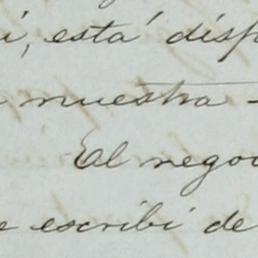 está disp
nuestra
El nego
escribí de